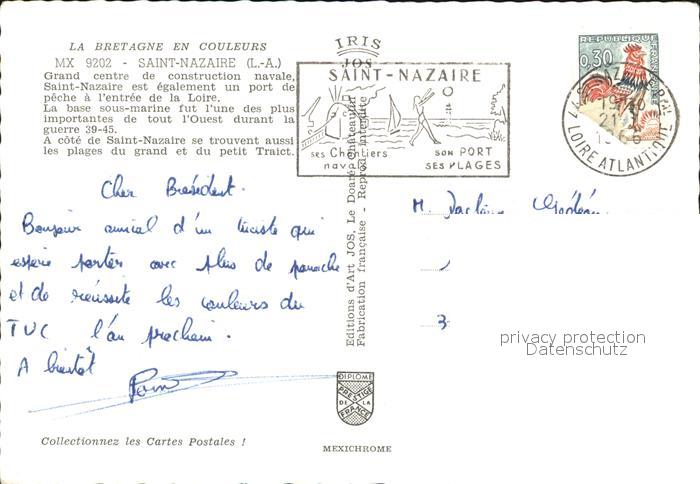 LA BRETAGNE EN COULEURS
MX 9202 - SAINT-NAZAIRE (L.-A.)
Grand centre de construction navale,
Saint-Nazaire est également un port de
pêche à l'entrée de la Loire.
La base sous-marine fut l'une des plus
importantes de tout l'Ouest durant la
guerre 39-45.
A côté de Saint-Nazaire se trouvent aussi
les plages du grand et du petit Traict.
IRIS
JOS
SAINT-NAZAIRE
ses Chantiers
navals
son PORT
SES PLAGES
REPUBLIQUE
FRANCAISE
0,30
LOIRE ATLANTIQUE
Cher Président.
Bonjour amical d'un tuciste qui
espère porter avec plus de panache
et de réussite les couleurs du
TUC l'an prochain.
A bientôt
Editions d'Art JOS, Le Doaré, Châteaulin
Fabrication française - Reprod. interdite
M.
3
privacy protection
Datenschutz
DIPLOME
PRESTIGE
DE LA
FRANCE
Collectionnez les Cartes Postales !
MEXICHROME